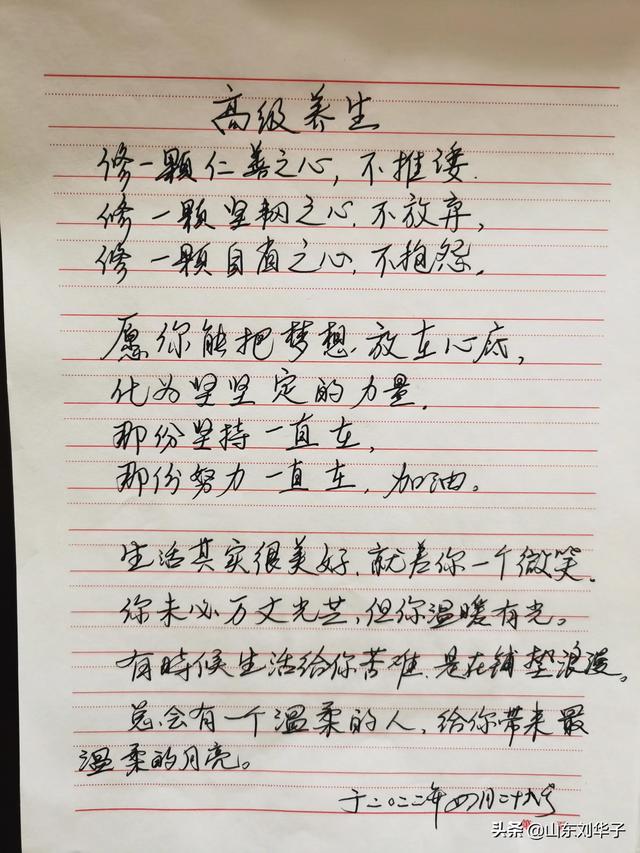 高级养生
修一颗仁善之心,不推诿.
修一颗坚韧之心.不放弃,
修一颗自省之心,不抱怨.
愿你能把梦想放在心底,
化为坚坚定的力量.
那份坚持一直在,
那份努力一直在,加油。
生活其实很美好.就差你一个微笑.
你未必万丈光芒,但你温暖有光。
有時候生活给你苦难.是在铺垫浪漫。
总会有一个温柔的人,给你带来最
温柔的月亮。
于二〇二二年四月二十九号
头条@山东刘华子